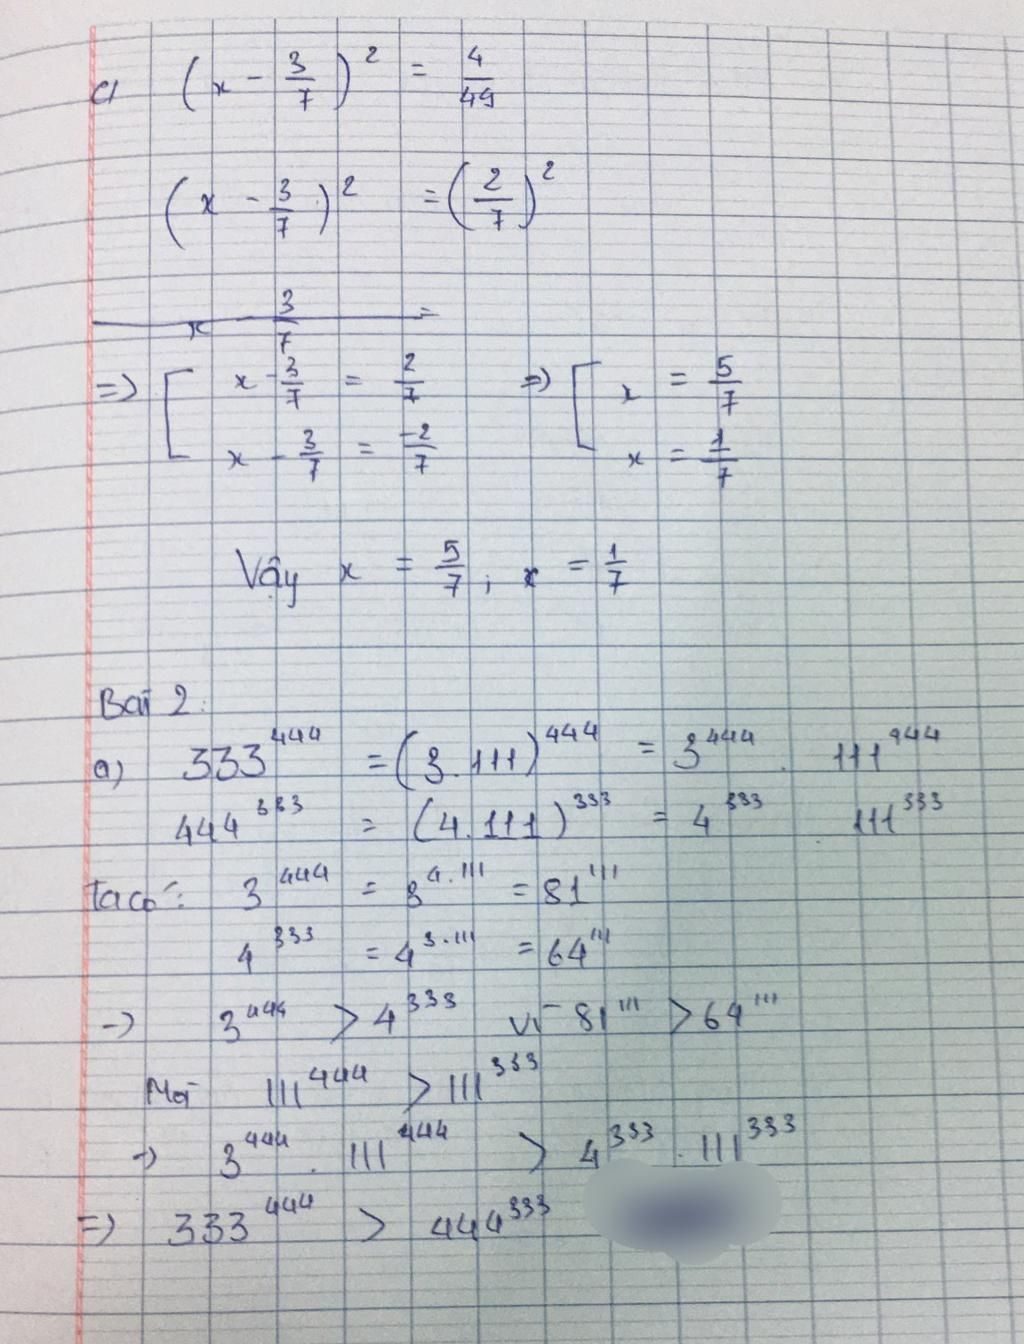 c) (x - 3/7)² = 4/49
(x - 3/7)² = (2/7)²
x 3/7 =
=> [ x - 3/7 = 2/7 => [ x = 5/7
x - 3/7 = -2/7 x = 1/7
Vậy x = 5/7 ; x = 1/7
Bài 2:
a) 333⁴⁴⁴ = (3.111)⁴⁴⁴ = 3⁴⁴⁴ . 111⁴⁴⁴
444³³³ = (4.111)³³³ = 4³³³ 111³³³
Ta có: 3⁴⁴⁴ = 3⁴·¹¹¹ = 81¹¹¹
4³³³ = 4³·¹¹¹ = 64¹¹¹
-> 3⁴⁴⁴ > 4³³³ vì 81¹¹¹ > 64¹¹¹
Mà 111⁴⁴⁴ > 111³³³
-> 3⁴⁴⁴ . 111⁴⁴⁴ > 4³³³ . 111³³³
=> 333⁴⁴⁴ > 444³³³